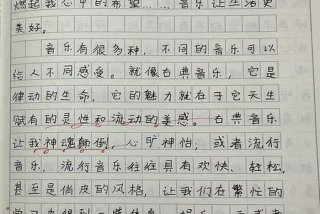 燃起我心中的希望……音乐让生活更
美好。
音乐有很多种，不同的音乐可以
给人不同感受。就像古典音乐，它是
律动的生命，它的魅力就在于它天生
赋有的灵性和流动的美感。古典音乐
让我神魂颠倒，心旷神怡；或者流行
音乐，流行音乐往往具有欢快、轻松，
甚至是俏皮的风格，让我们在繁忙的